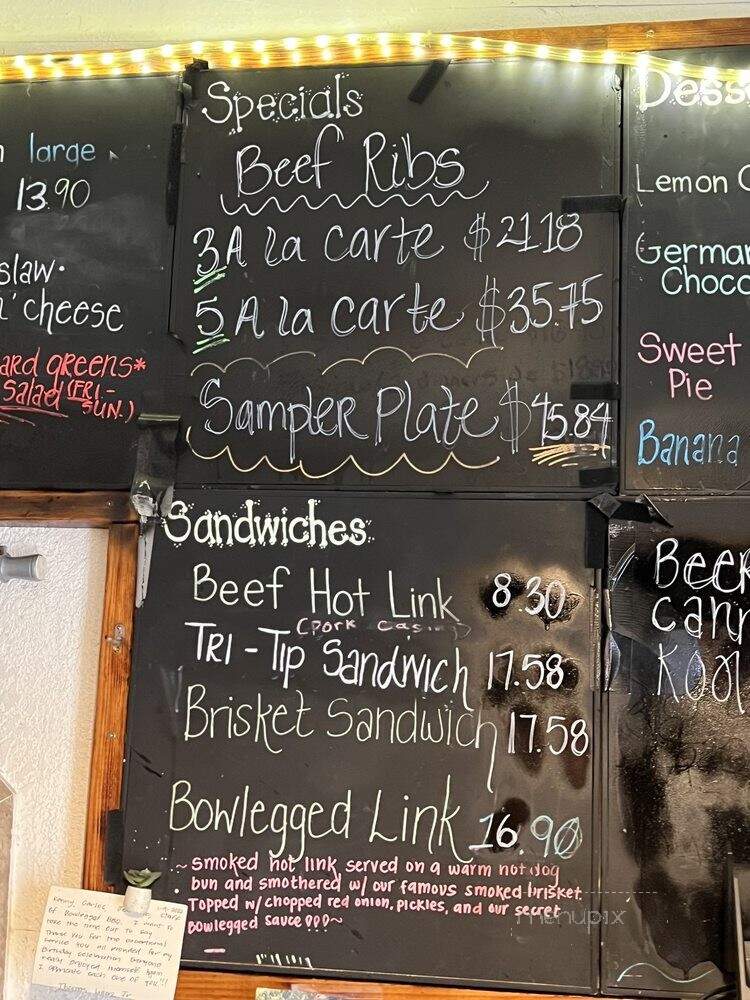 large
13.90
slaw.
n' cheese
ard greens*
Salad (FRI-
SUN.)
Specials
Beef Ribs
3 A la carte $21.18
5 A la carte $35.75
Sampler Plate $45.84
Dess
Lemon C
German
Choco
Sweet
Pie
Banana
Sandwiches
Beef Hot Link 8.30
(Pork casing)
TRI-Tip Sandwich 17.58
Brisket Sandwich 17.58
Bowlegged Link 16.90
~smoked hot link served on a warm hotdog
bun and smothered w/ our famous smoked brisket.
Topped w/ chopped red onion, pickles, and our secret
Bowlegged sauce
Beer
cann
Kool
menupix